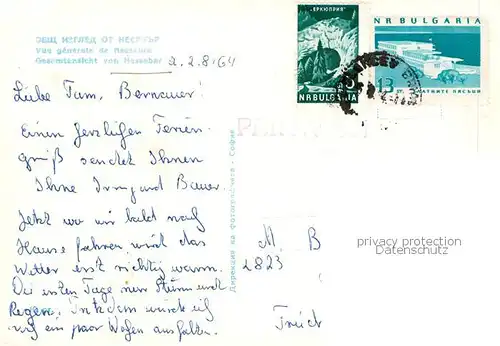 ОБЩ ИЗГЛЕД ОТ НЕСЕБЪР
Vue générale de Nessebre
Gesamtansicht von Nessebar
2.2.8.64
"ЕРКЮПРИЯ"
NR BULGARIA
NR BULGARIA
13
Liebe Fam. Bernauer!
Einen herzlichen Ferien-
gruß sendet Ihnen
Ihre Irmgard Bauer.
Jetzt wo wir bald nach
Hause fahren wird das
Wetter erst richtig warm.
Die ersten Tage nur Sturm und
Regen. Trotzdem würde ich
noch ein paar Wochen aushalten.
Дирекция на Фотографията - София
M. B
2823
privacy protection
Datenschutz